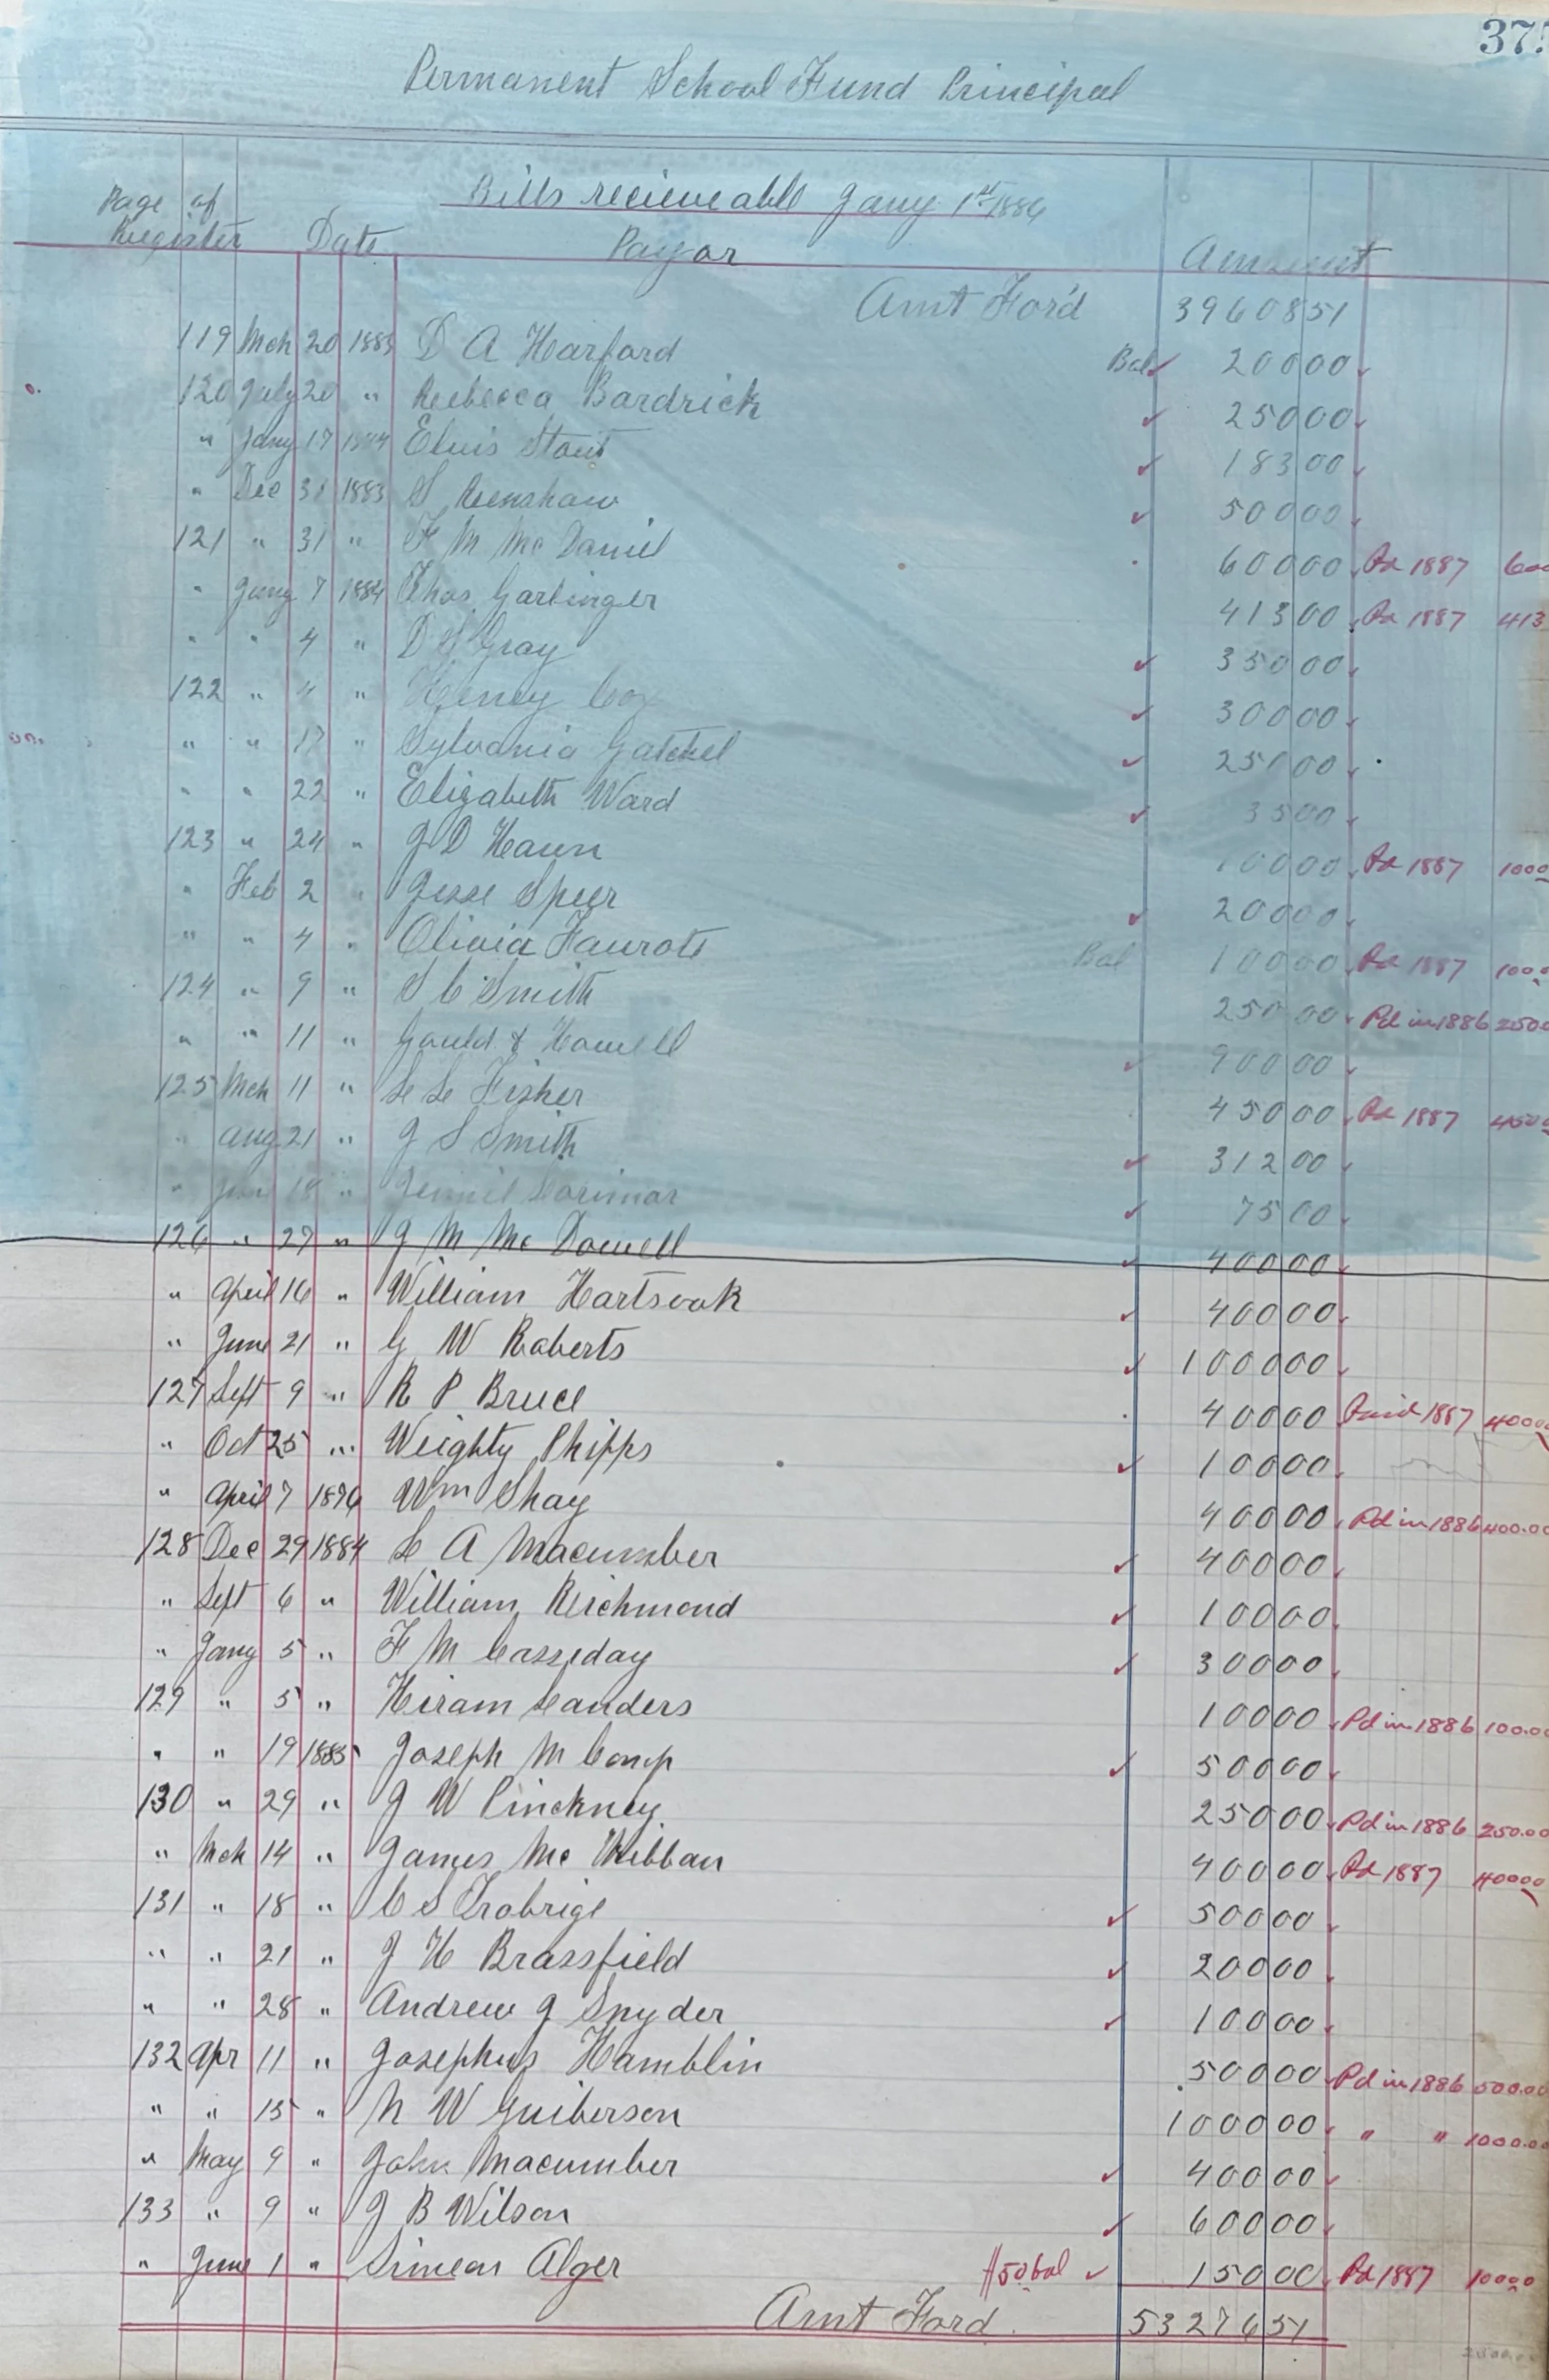 37
Permanent School Fund Principal
Bills recieveable Jany 1st 1886
Page of Register Date Payor Amount
Amt Ford 39608 51
119 Mch 20 1883 D A Harford Bal ✓ 200 00
120 July 20 " Rebecca Bardrick ✓ 250 00
" Jany 17 1884 Elvis Stout ✓ 183 00
" Dec 31 1883 S Renshaw ✓ 500 00
121 " 31 " F M Mc Daniel 600 00 Pd 1887 600
" Jany 7 1884 Thos Garlinger 413 00 Pd 1887 413
" " 4 " D S Gray ✓ 350 00
122 " " " Henry Cox ✓ 300 00
" " 17 " Sylvania Gatchel ✓ 250 00
" " 22 " Elizabeth Ward ✓ 35 00
123 " 24 " J D Haun 100 00 Pd 1887 100 0
" Feb 2 " Jesse Speer ✓ 200 00
" " 4 " Olivia Faurote Bal 100 00 Pd 1887 100 0
124 " 9 " S C Smith 250 00 Pd in 1886 250 0
" " 11 " Gould & Howell ✓ 900 00
125 Mch 11 " L L Fisher 450 00 Pd 1887 450 0
" Aug 21 " J S Smith ✓ 312 00
" 18 " Jennie Lorimor ✓ 75 00
126 " 27 " J M Mc Dowell ✓ 400 00
" April 16 " William Hartsook ✓ 400 00
" June 21 " G W Roberts ✓ 1000 00
127 Sept 9 " R P Bruce 400 00 Paid 1887 400 00
" Oct 25 " Weighty Phipps ✓ 100 00
" April 7 1876 Wm Shay 400 00 Pd in 1886 400.00
128 Dec 29 1884 L A Macumber ✓ 400 00
" Sept 6 " William Reichmond ✓ 100 00
" Jany 5 " F M Cassiday ✓ 300 00
129 " 5 " Hiram Landers 100 00 Pd in 1886 100.00
" " 19 1885 Joseph M Comp ✓ 500 00
130 " 29 " J W Pinckney 250 00 Pd in 1886 250.00
" Mch 14 " James Mc Kibban 400 00 Pd 1887 400 00
131 " 18 " C S Trobrige ✓ 500 00
" " 21 " J H Brassfield ✓ 200 00
" " 28 " Andrew J Snyder ✓ 100 00
132 Apr 11 " Josephus Hamblin 500 00 Pd in 1886 500.00
" " 15 " N W Guiberson 1000 00 " " 1000.00
" May 9 " John Macumber ✓ 400 00
133 " 9 " J B Wilson ✓ 600 00
" June 1 " Simeon Alger $50 bal ✓ 150 00 Pd 1887 100 00
Amt Ford 53276 51